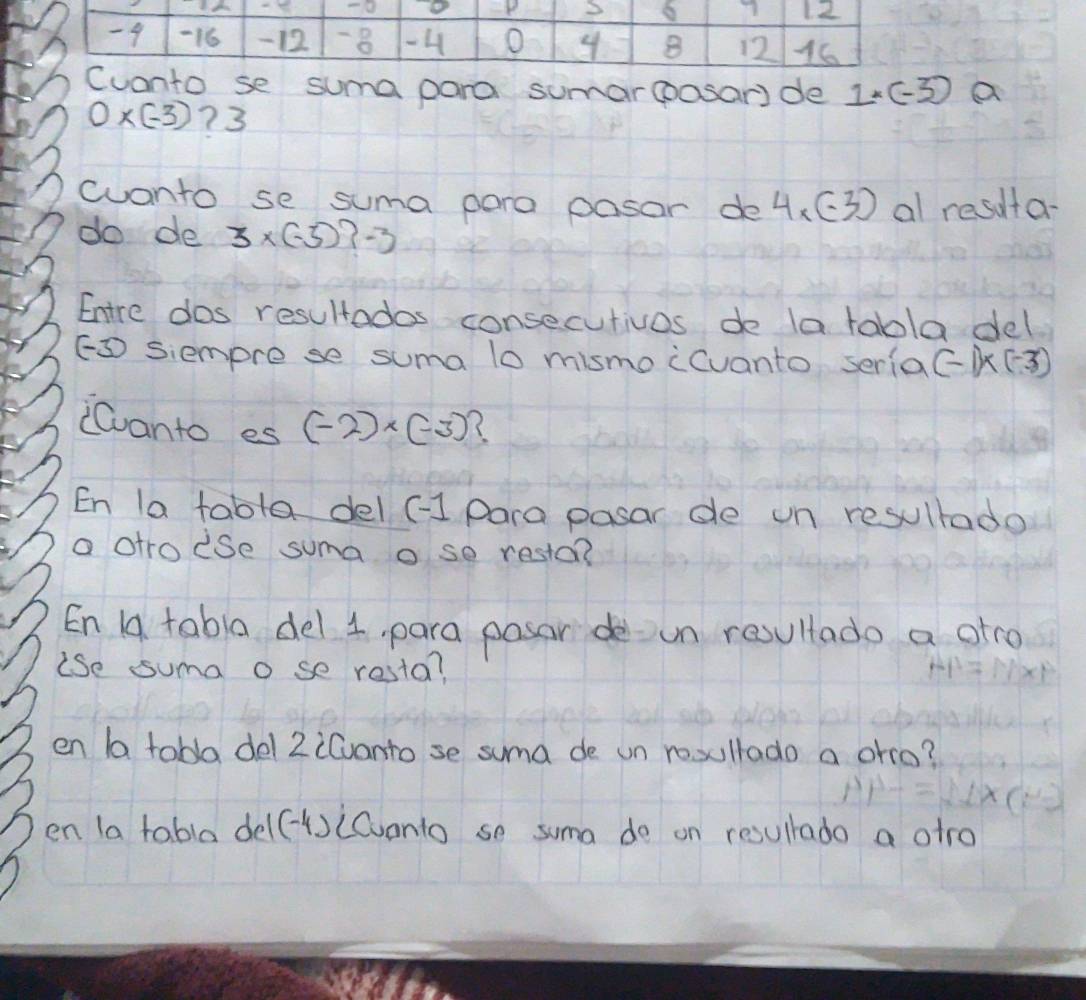 -4 -16 -12 -8 -4 0 4 8 12 16
Cuanto se suma para sumar (pasar) de 1×(-3) a
0×(-3)? 3
cuanto se suma para pasar de 4×(-3) al resulta-
do de 3×(-3)? -3
Entre dos resultados consecutivos de la tabla del
(-3) siempre se suma lo mismo ¿Cuanto sería (-1)×(-3)
¿Cuanto es (-2)×(-3)?
En la tabla del (-1 para pasar de un resultado
a otro ¿Se suma o se resta?
En la tabla del 1 para pasar de un resultado a otro
¿Se suma o se resta?
en la tabla del 2 ¿Cuanto se suma de un resultado a otro?
en la tabla del (-4) ¿Cuanto se suma de un resultado a otro